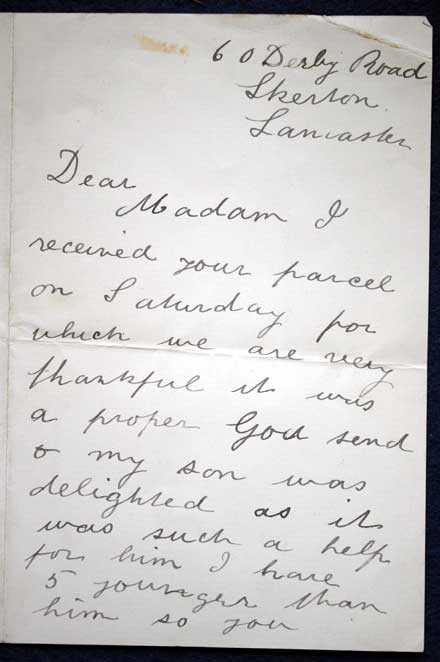 60 Derby Road
Skerton.
Lancaster
Dear
Madam I
received your parcel
on Saturday for
which we are very
thankful it was
a proper God send
& my son was
delighted as it
was such a help
for him I have
5 younger than
him so you